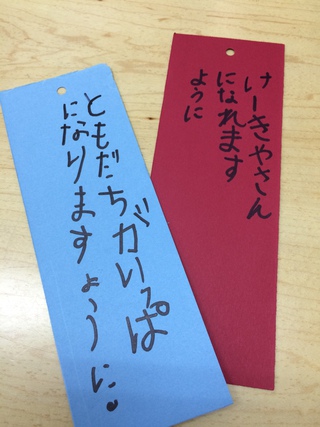 けーきやさん
になれます
ように
ともだちがいっぱい
になりますように。